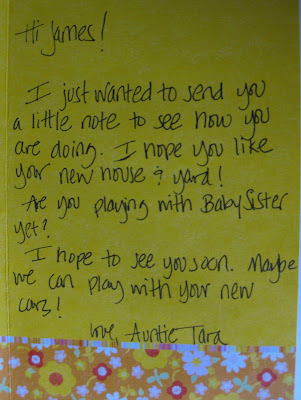 Hi James!
I just wanted to send you
a little note to see how you
are doing. I hope you like
your new house & yard!
Are you playing with Baby Sister
yet?
I hope to see you soon. Maybe
we can play with your new
cars!
Love, Auntie Tara